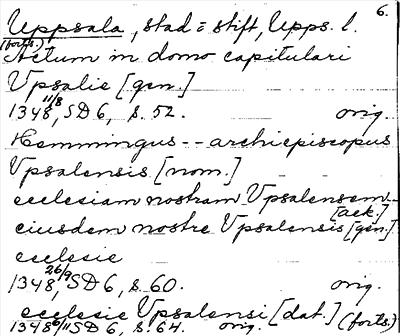 6.
Uppsala, stad = stift, Upps. l.
(forts.)
Actum in domo capitulari
Vpsalie [gen.]
1348 11/8, SD 6, s. 52. orig.
Hemmingus -- archiepiscopus
Vpsalensis [nom.]
ecclesiam nostram Vpsalensem --
[ack.]
eiusdem nostre Vpsalensis [gen.]
ecclesie
1348 26/9, SD 6, s. 60. orig.
ecclesie Vpsalensi [dat.] (forts.)
1348 6/11 SD 6, s. 64. orig.